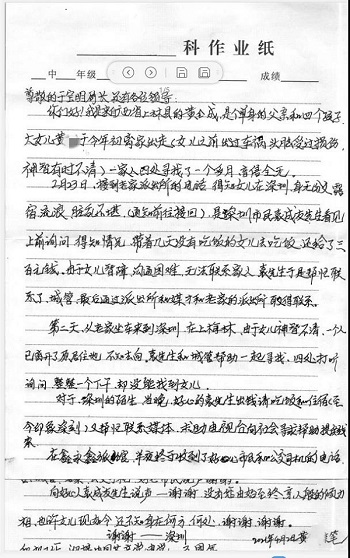 科作业纸
中 年级 成绩
尊敬的于宝明所长及各位领导:
你们好!我是来自西省上犹县的黄金成,是个单身的父亲和四个孩子
大女儿黄 于今年初离家出走(女儿之前出过车祸,头脑受过损伤
神智有时不清)一家人四处寻找了一个多月,音信全无。
2月23日,接到老家派出所的电话,得知女儿在深圳,身无分文,露
宿流浪,脏乱不堪,(通知前往接回),是深圳市民袁成友先生看见
上前询问,得知情况,带着几天没有吃饭的女儿去吃饭,还给了三
百元钱,由于女儿智障,沟通困难,无法联系家人,袁先生于是帮忙联
系了城管,最后通过派出所和媒才和老家的派出所取得联系。
第二天,从老家坐车来到深圳,在上梅林,由于女儿神智不清,一个人
已离开了原居住地,不知去向,袁先生和城管帮助一起寻找,四处打听
询问,整整一个下午,却没能找到女儿。
对于,深圳的陌生,当晚,好心的袁先生出钱请吃饭和住宿(至
今印象深刻)又帮忙联系媒体,求助电视台向社会寻求帮助提供线
来
在鑫永鑫派出所,半夜终于收到了好心市民和公交司机的电话
向好心袁成友先生说声一谢谢,没有您由始至终,高人般的倾力
相,也许女儿现如今还不知身在何方,何处,谢谢,谢谢。
谢谢——深圳
2021年4月2日黄